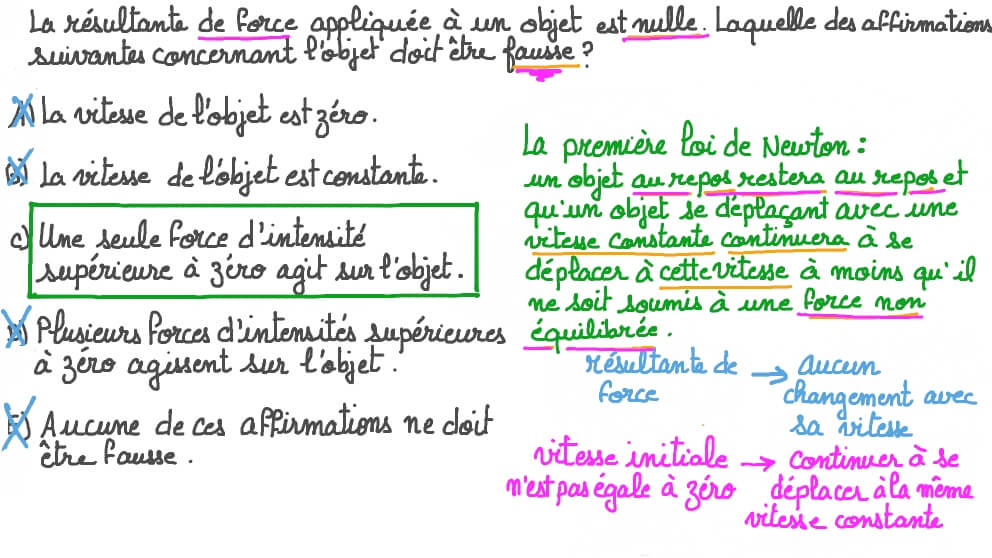 La résultante de force appliquée à un objet est nulle. Laquelle des affirmations
suivantes concernant l'objet doit être fausse ?
A) La vitesse de l'objet est zéro.
B) La vitesse de l'objet est constante.
c) Une seule force d'intensité
supérieure à zéro agit sur l'objet.
D) Plusieurs forces d'intensités supérieures
à zéro agissent sur l'objet.
E) Aucune de ces affirmations ne doit
être fausse.
La première loi de Newton :
un objet au repos restera au repos et
qu'un objet se déplaçant avec une
vitesse constante continuera à se
déplacer à cette vitesse à moins qu'il
ne soit soumis à une force non
équilibrée.
résultante de force → aucun
changement avec
sa vitesse
vitesse initiale → continuer à se
n'est pas égale à zéro déplacer à la même
vitesse constante